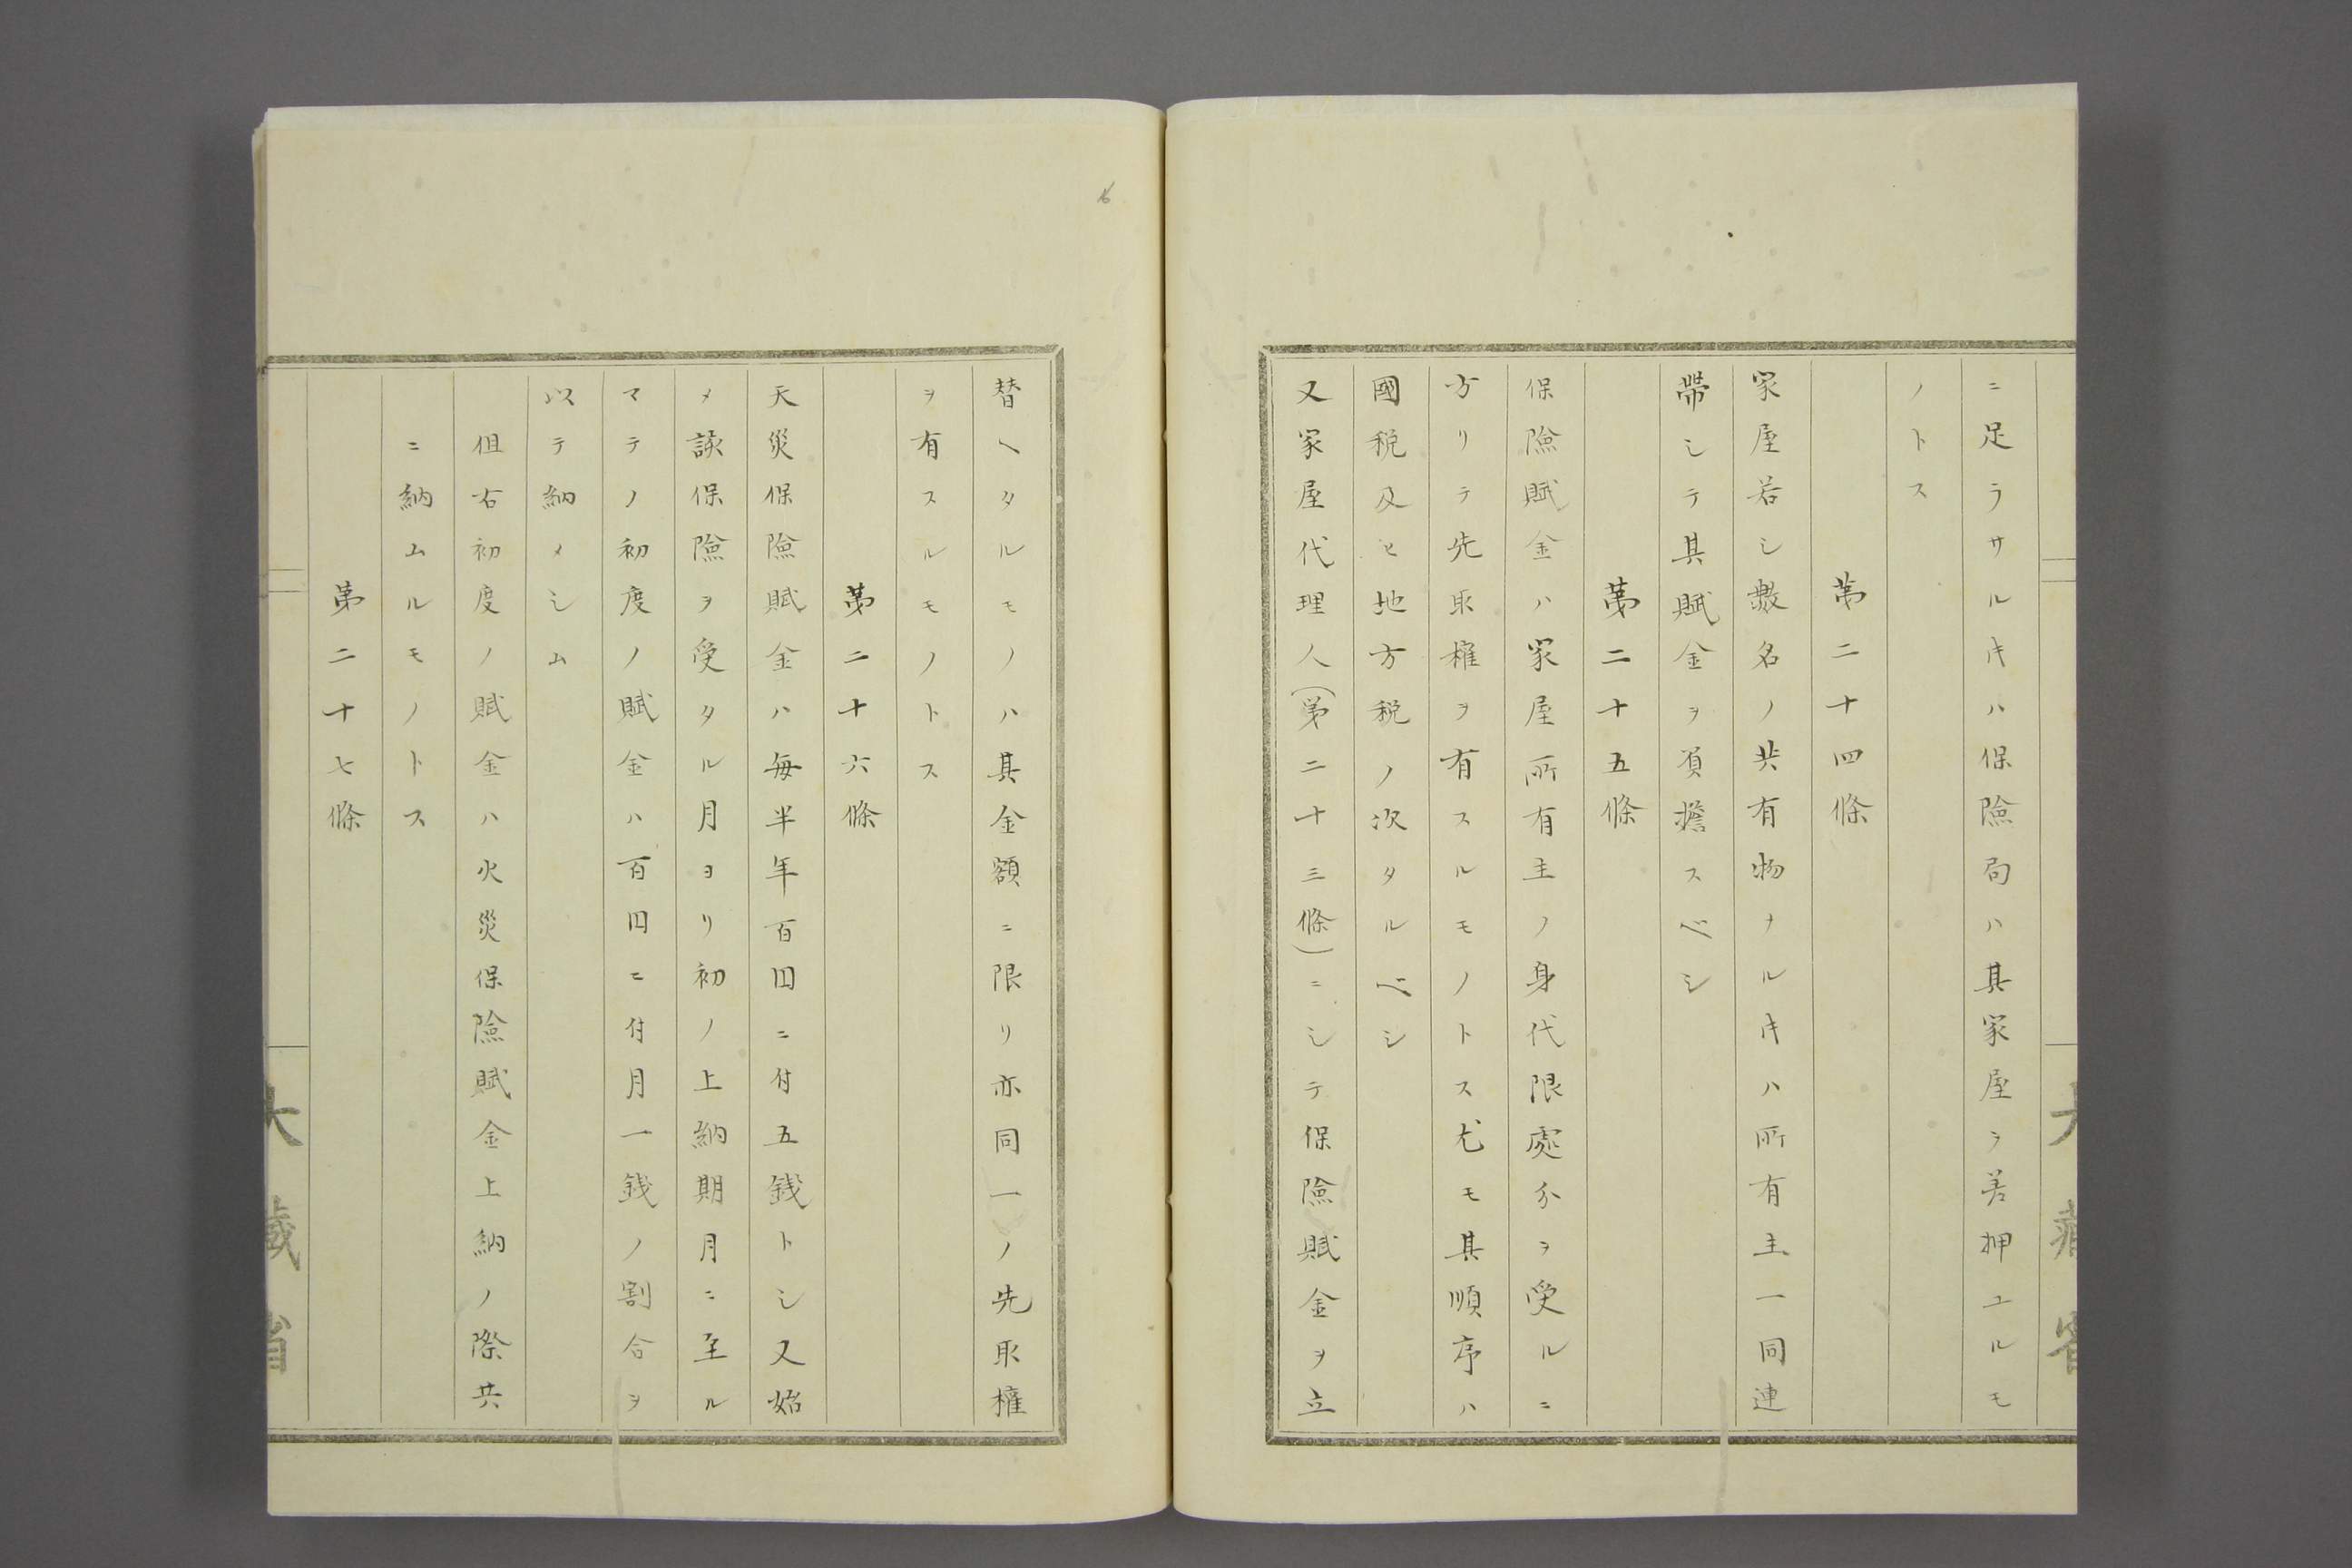 ニ足ラサルキハ保險局ハ其家屋ヲ差押ユルモ
ノトス
第二十四條
家屋若シ數名ノ共有物ナルキハ所有主一同連
帶シテ其賦金ヲ負擔スベシ
第二十五條
保險賦金ハ家屋所有主ノ身代限處分ヲ受ルニ
方リテ先取權ヲ有スルモノトス尤モ其順序ハ
國税及ヒ地方税ノ次タルベシ
又家屋代理人(第二十三條)ニシテ保險賦金ヲ立
大藏省
替ヘタルモノハ其金額ニ限リ亦同一ノ先取權
ヲ有スルモノトス
第二十六條
天災保險賦金ハ毎半年百円ニ付五銭トシ又始
メ該保險ヲ受タル月ヨリ初ノ上納期月ニ至ル
マテノ初度ノ賦金ハ百円ニ付月一銭ノ割合ヲ
以テ納メシム
但右初度ノ賦金ハ火災保險賦金上納ノ際共
ニ納ムルモノトス
第二十七條
大藏省